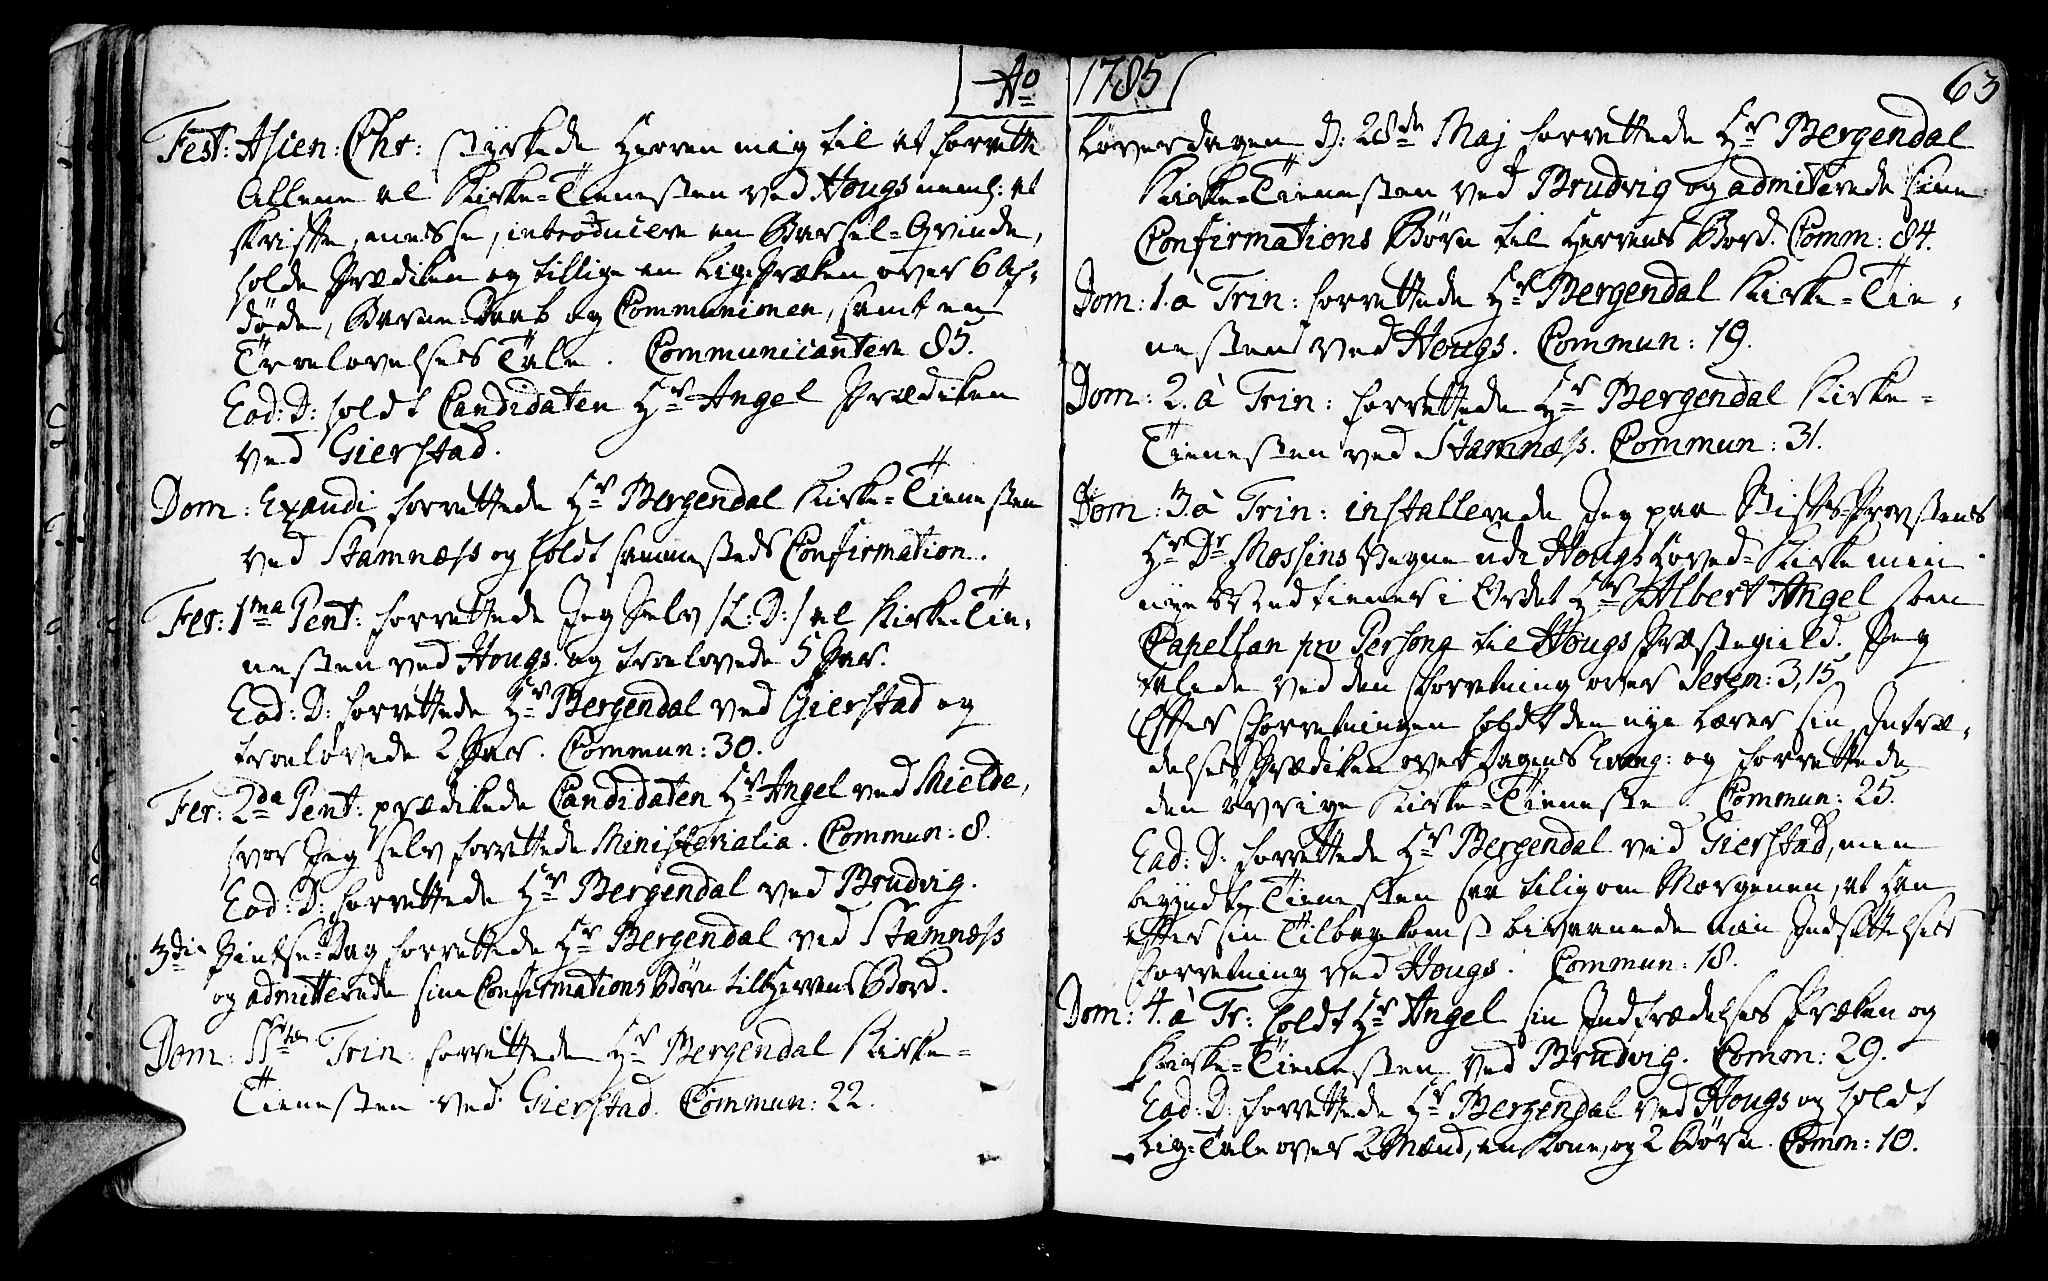 Ao
Fest: Asien: Chr: styrkede Herren mig til at forrette
Allene al Kirke=Tienesten ved Hougs neml: at
skrifte, messe, introducere en Barsel=Qvinde,
holde Prædiken og tillige en Lig-Præken over 6 Af-
døde, Barne-Daab og Communionen, samt en
Troelovelses Tale. Communicantere 85.
Eod: D: holdt Candidaten Hr Angel Prædiken
ved Gierstad.
Dom: Exaudi forrettede Hr Bergendal Kirke=Tienesten
ved Stamnæss og holdt sammesteds Confirmation.
Fer: 1ma Pent: forrettede Jeg Selv /:L: D:/ al Kirke-Tie-
nesten ved Hougs og troelovede 5 Par.
Eod: D: forrettede Hr Bergendal ved Gierstad og
troelovede 2 Par. Commun: 30.
Fer: 2da Pent: prædikede Candidaten Hr Angel ved Skielde,
hvor Jeg selv forrettede Ministerialia. Commun: 8.
Eod: D: forrettede Hr Bergendal ved Brudvig.
3die Pintse-Dag forrettede Hr Bergendal ved Stamnæss
og admitterede sine Confirmations Børn til Herrens Bord.
Dom: SSte Trin: forrettede Hr Bergendal Kirke=
Tienesten ved Gierstad. Commun: 22.
1785
63
Løverdagen D: 28de Maj forrettede Hr Bergendal
Kirke=Tienesten ved Brudvig og admiterede sine
Confirmations Børn til Herrens Bord. Comm: 84.
Dom: 1. à Trin: forrettede Hr Bergendal Kirke=Tie-
nesten ved Hougs. Commun: 19.
Dom: 2. à Trin: forrettede Hr Bergendal Kirke-
Tienesten ved Stamnæss. Commun: 31.
Dom: 3 à Trin: installerede Jeg paa Stifts-Provstens
Hr Dr Mossins Vegne udi Hougs Hoved=Kirke min
nye Medtiener i Ordet Hr Albert Angel som
Capellan pro Persona til Hougs Præstegield. Jeg
talede ved den Forretning over Jerem: 3, 15.
Efter Forretningen holdt den nye Lærer sin Intræ-
delses Prædiken over Dagens Evang: og forrettede
den øvrige Kirke=Tieneste. Commun: 25.
Eod: D: forrettede Hr Bergendal ved Gierstad, men
begyndte Tienesten saa tilig om Morgenen, at han
efter sin Tilbagekomst bivaanede min Indsættelses
Forretning ved Hougs. Commun: 18.
Dom: 4. à Tr: holdt Hr Angel sin Indtrædelses Præken og
Kirke=Tienesten ved Brudvig. Comm: 29.
Eod: D: forrettede Hr Bergendal ved Hougs og holdt
Lig-Tale over 2 Mænd, en Kone, og 2 Børn. Comm: 10.